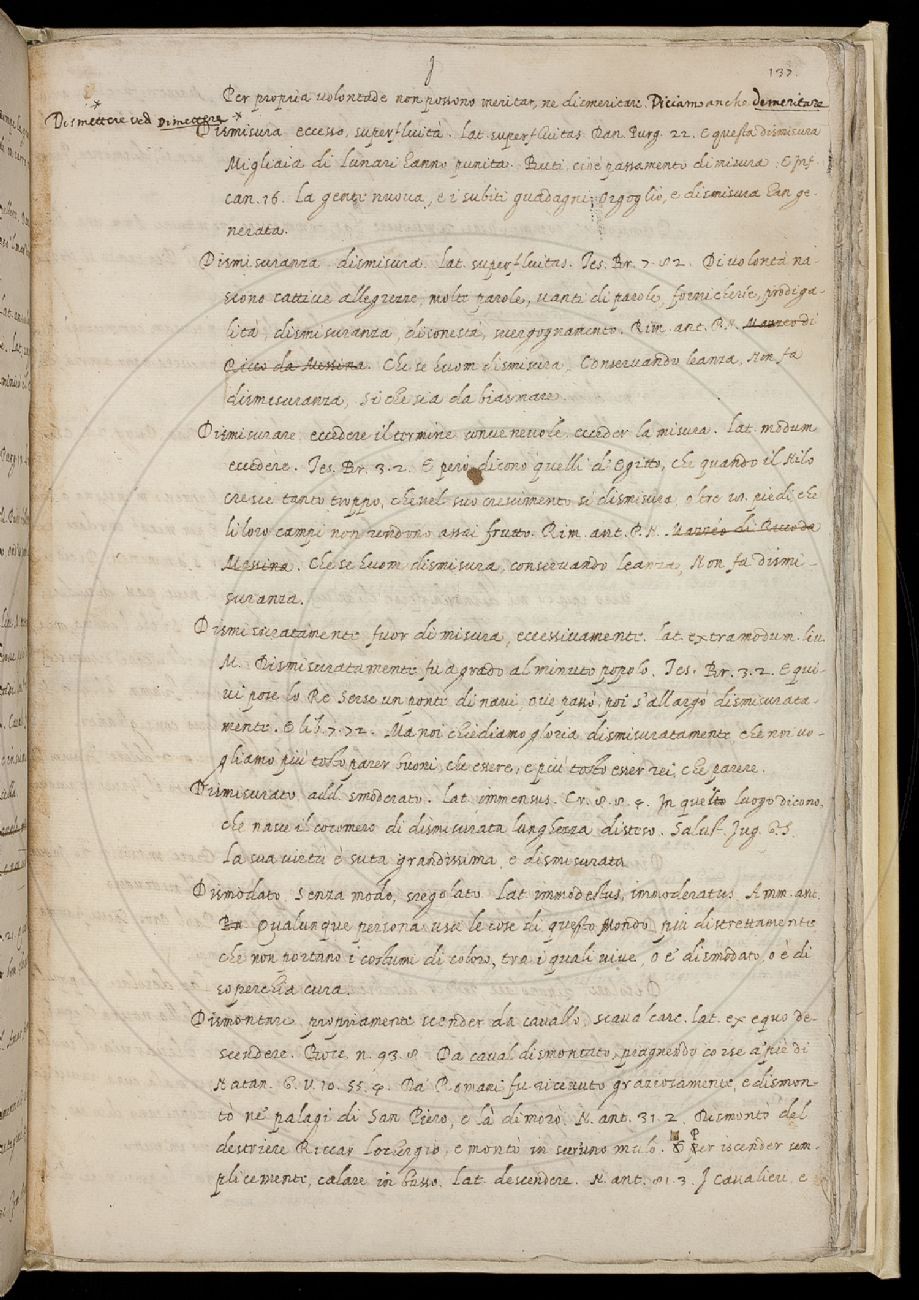 137.
Per propria volontade non possono meritar, ne dismeritare. Diciamo anche demeritare
* Dismettere ved dimettere *
Dismisura eccesso, superfluità. Lat. superfluitas. Dan. Purg. 22. E questa dismisura
Migliaia di lunari hanno punita. Buti, cioè passamento di misura. E Inf.
can. 16. La gente nuova, e i subiti guadagni Orgoglio, e dismisura han ge-
nerata.
Dismisuranza dismisura. Lat. superfluitas. Tes. Br. 7. 82. Di volontà na-
scono cattive allegrezze, molte parole, vanti di parole, fornicherie, prodiga-
lità, dismisuranza, disonestà, svergognamento. Rim. ant. P. N. Mazzeo di
Ricco da Messina. Che se huom dismisura, Conservando leanza, Non fa
dismisuranza, Si che sia da biasmare.
Dismisurare, eccedere il termine convenevole, ecceder la misura. Lat. modum
eccedere. Tes. Br. 3. 2. E però dicono quelli di Egitto, che quando il Nilo
cresce tanto troppo, che nel suo crescimento si dismisura oltre 18. piedi che
li loro campi non rendono assai frutto. Rim. ant. P. N. Mazzeo di Ricco da
Messina. Che se huom dismisura, conservando leanza, Non fa dismi-
suranza.
Dismisuratamente fuor di misura, eccessivamente. lat. extra modum. liv.
M. Dismisuratamente fu a grado al minuto popolo. Tes. Br. 3. 2. E qui-
vi pose lo Re Serse un ponte di navi, ove passò, poi s'allargò dismisurata-
mente. E lib. 7. 72. Ma noi chiediamo gloria dismisuratamente che noi vo-
gliamo più tosto parer buoni, che essere, e più tosto esser rei, che parere.
Dismisurato add. smoderato. Lat. immensus. Cr. 8. 8. 4. In questo luogo dicono,
che nasce il cocomero di dismisurata lunghezza disteso. Salust. Jug.
La sua virtù è suta grandissima, e dismisurata
Dismodato senza modo, sregolato. Lat. immodestus, immoderatus. Amm. ant.
Qualunque persona usa le cose di questo Mondo più distrettamente
che non portano i costumi di coloro, tra i quali vive, o è dismodato, o è di
soperchia cura.
Dismontare propriamente scender da cavallo, scavalcare. lat. ex equo de-
scendere. Bocc. n. 93. 8. Da caval dismontato, piagnendo corse a' piè di
Natan. G. V. 10. 55. 4. Da' Romani fu ricevuto graziosamente, e dismon-
tò ne' palagi di San Piero, e là dimorò. N. ant. 31. 2. Dismontò del
destriere Riccar Loghergio, e montò in un mulo. P per iscender sem-
plicemente, calare in basso. Lat. descendere. N. ant. 81. 3. I cavalieri, e